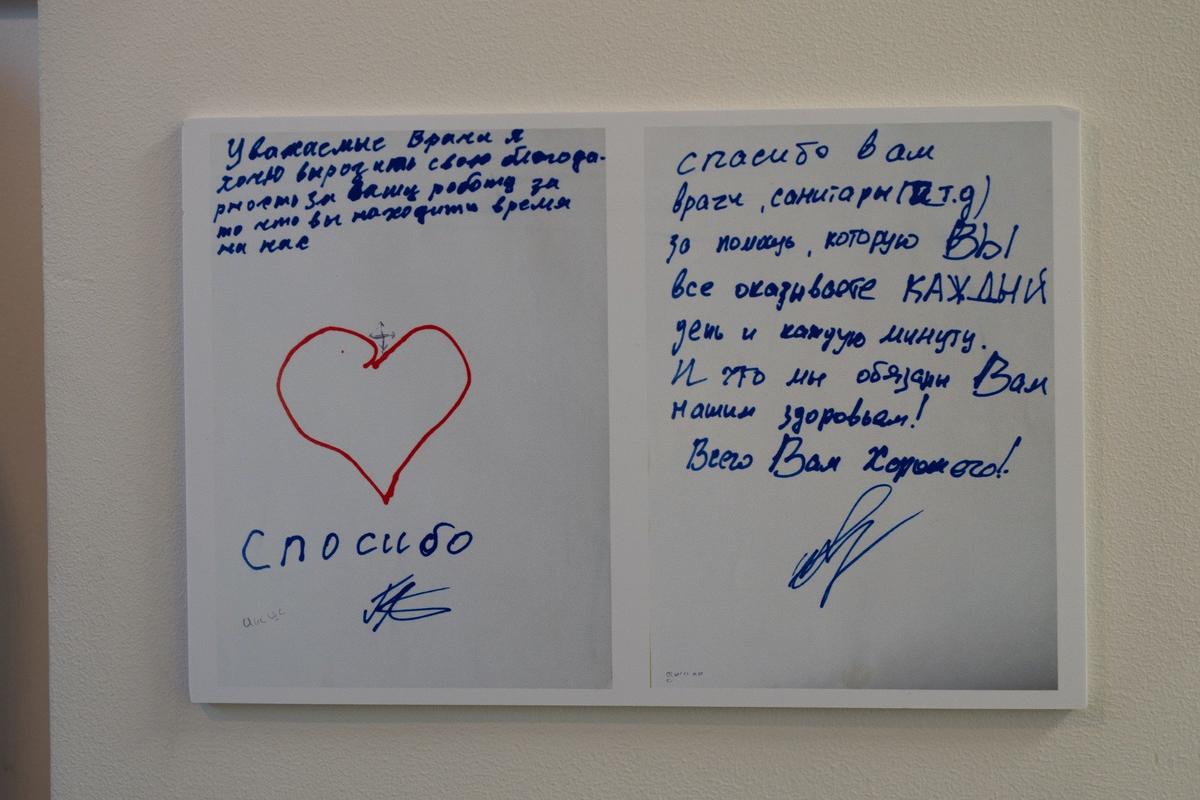 Уважаемые Врачи я
хочю выродить свою благода-
рность за вашу работу за
то что вы находити время
на нас
Спосибо
спасибо вам
врачи, санитары (и т.д)
за помощь, которую ВЫ
все оказываете КАЖДЫЙ
день и каждую минуту.
И что мы обязаны Вам
нашим здоровьем!
Всего Вам Хорошего!